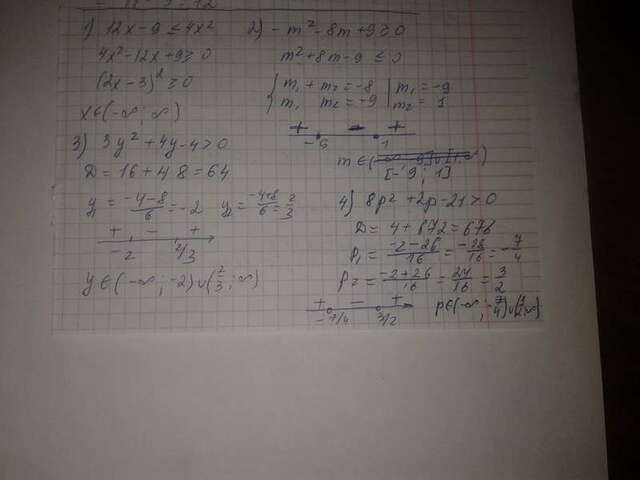 1) 12x - 9 ≤ 4x²
4x² - 12x + 9 ≥ 0
(2x - 3)² ≥ 0
x ∈ (-∞; ∞)
2) - m² - 8m + 9 ≥ 0
m² + 8m - 9 ≤ 0
{ m₁ + m₂ = -8 | m₁ = -9
m₁ m₂ = -9 | m₂ = 1
+ - +
-9 1
m ∈ (-∞; -9] ∪ [1; ∞)
[-9; 1]
3) 3y² + 4y - 4 > 0
D = 16 + 48 = 64
y₁ = (-4-8)/6 = -2 y₂ = (-4+8)/6 = 2/3
+ - +
-2 2/3
y ∈ (-∞; -2) ∪ (2/3; ∞)
4) 8p² + 2p - 21 > 0
D = 4 + 672 = 676
p₁ = (-2-26)/16 = -28/16 = -7/4
p₂ = (-2+26)/16 = 24/16 = 3/2
+ - +
-7/4 3/2
p ∈ (-∞; -7/4) ∪ (3/2; ∞)